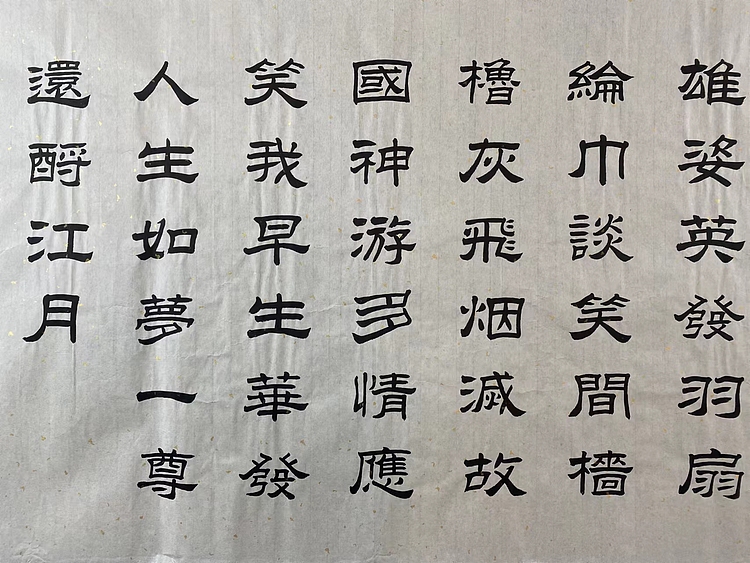 雄姿英發羽扇
綸巾談笑間檣
櫓灰飛烟滅故
國神游多情應
笑我早生華發
人生如夢一尊
還酹江月